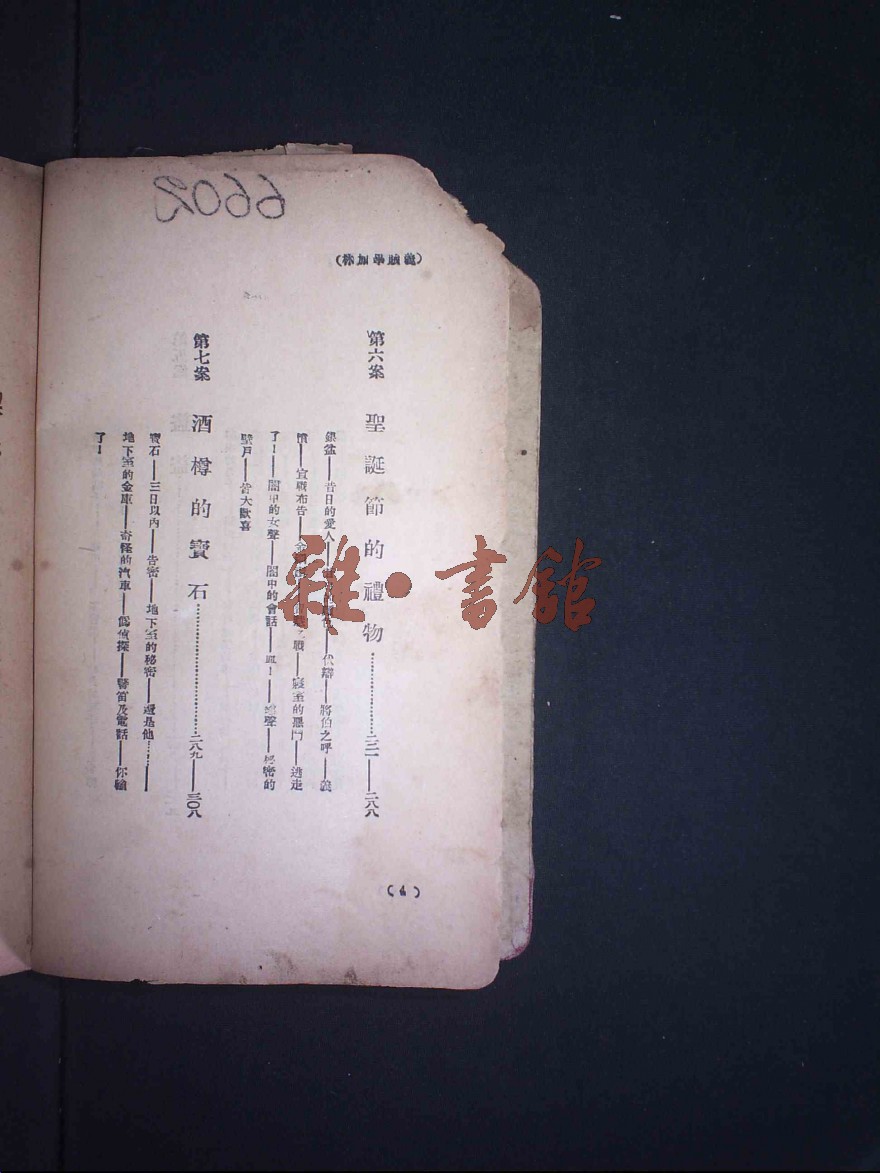 6602
（義賊畢加林）
第六案 聖誕節的禮物…………二三一——二八八
銀盆——昔日的愛人——代辯——將伯之呼——義
憤——宣戰布告——戰——寢室的惡鬥——逃走
了！——閣中的女聲——閣中的會話——風！——秘密的
壁戶——皆大歡喜
第七案 酒樽的寶石…………二八九——三〇八
寶石——三日以內——告密——地下室的秘密——還是他……！——
地下室的金庫——奇怪的汽車——偽偵探——警笛及電話——你輸
了！
（4）
雜·書館